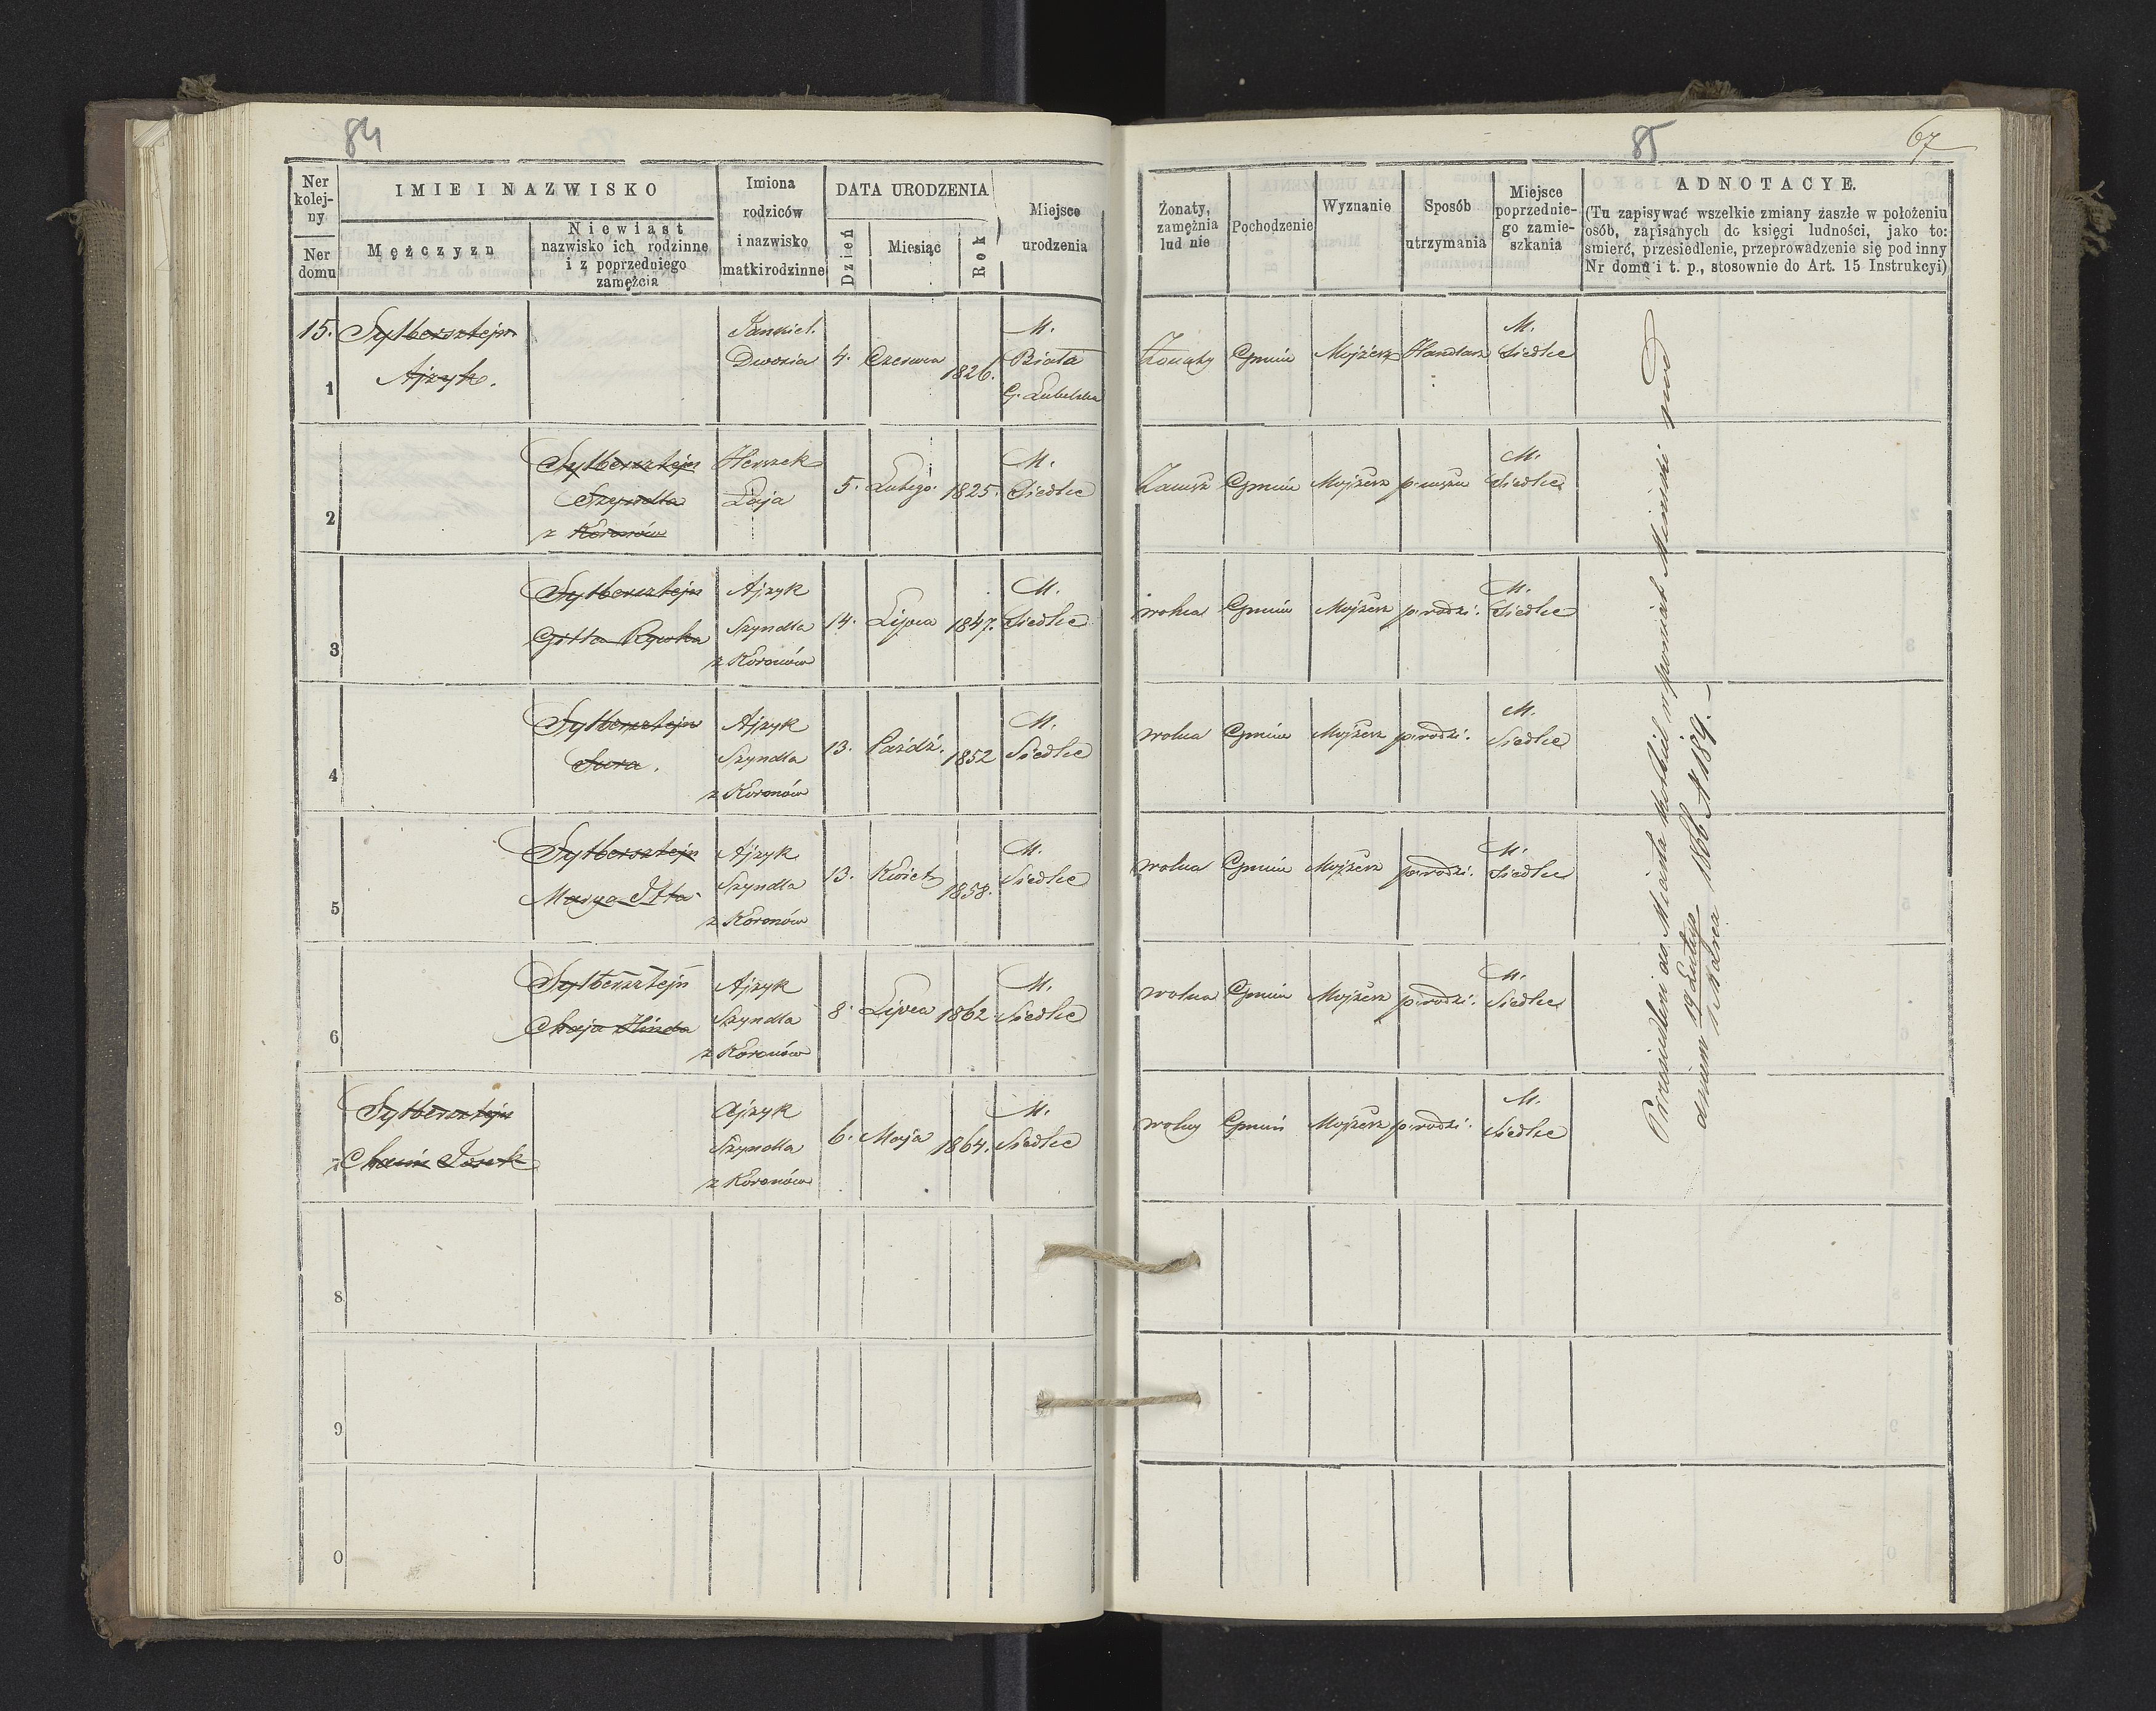 84
Ner kolejny
Ner domu
IMIE I NAZWISKO
Mężczyzn
Niewiast
nazwisko ich rodzinne
i z poprzedniego
zamężcia
Imiona
rodziców
i nazwisko
matki rodzinne
DATA URODZENIA
Dzień
Miesiąc
Rok
Miejsce
urodzenia
15.
1
Sylbersztejn
Ajzyk.
Jankiel.
Dwosia
4. Czerwca 1826.
M.
Biała
G. Lubelska
2
Sylbersztejn
Szyndla
z Koronów
Herszek
Łaja
5. Lutego. 1825.
M.
Siedlce
3
Sylbersztejn
Gitla Rywka
Ajzyk
Szyndla
z Koronów
14. Lipca 1847.
M.
Siedlce
4
Sylbersztejn
Sura.
Ajzyk
Szyndla
z Koronów
13. Paźdź. 1852
M.
Siedlce
5
Sylbersztejn
Marya Itta
Ajzyk
Szyndla
z Koronów
13. Kwiet 1858.
M.
Siedlce
6
Sylbersztejn
Chaja Hinda
Ajzyk
Szyndla
z Koronów
8. Lipca 1862
M.
Siedlce
7
Sylbersztejn
Chaim Josek
Ajzyk
Szyndla
z Koronów
6. Maja 1864.
M.
Siedlce
8
9
0
85
67
Żonaty,
zamężnia
lud nie
Pochodzenie
Wyznanie
Sposób
utrzymania
Miejsce
poprzednie-
go zamie-
szkania
ADNOTACYE.
(Tu zapisywać wszelkie zmiany zaszłe w położeniu
osób, zapisanych do księgi ludności, jako to:
śmierć, przesiedlenie, przeprowadzenie się pod inny
Nr domu i t. p., stosownie do Art. 15 Instrukcyi)
Żonaty Gmin Mojżesz Handlarz
M.
Siedlce
Zamęż Gmin Mojżesz p. mężu
M.
Siedlce
wolna Gmin Mojżesz p. rodzi.
M.
Siedlce
wolna Gmin Mojżesz p. rodzi.
M.
Siedlce
wolna Gmin Mojżesz p. rodzi.
M.
Siedlce
wolna Gmin Mojżesz p. rodzi.
M.
Siedlce
wolny Gmin Mojżesz p. rodzi.
M.
Siedlce
Przesiedleni do Miasta w powiat Miński pod
dniem 19 Lutego
1 Marca 1866 N 189.